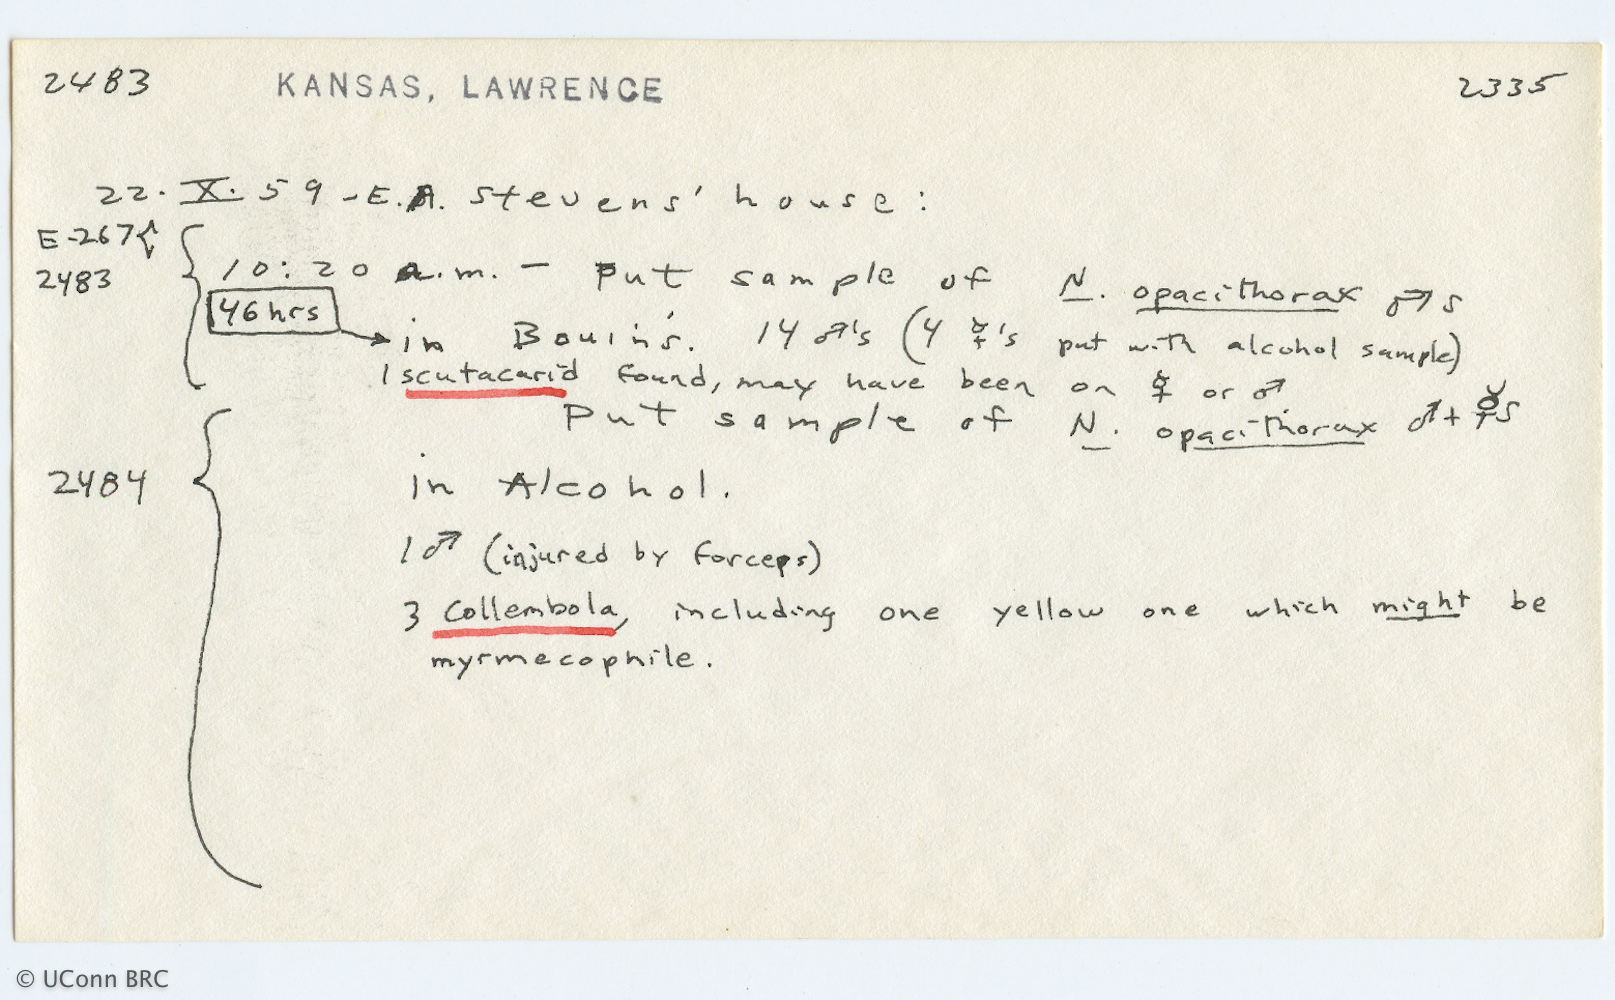 2483 KANSAS, LAWRENCE 2335
22. X. 59 - E.A. Stevens' house:
E-267
2483
10:20 a.m. - Put sample of N. opacithorax ♂s
46 hrs → in Bouin's. 14 ♂'s (4 ☿'s put with alcohol sample)
1 scutacarid found, may have been on ☿ or ♂
Put sample of N. opacithorax ♂ + ☿s
2484
in Alcohol.
1 ♂ (injured by forceps)
3 Collembola, including one yellow one which might be
myrmecophile.
© UConn BRC